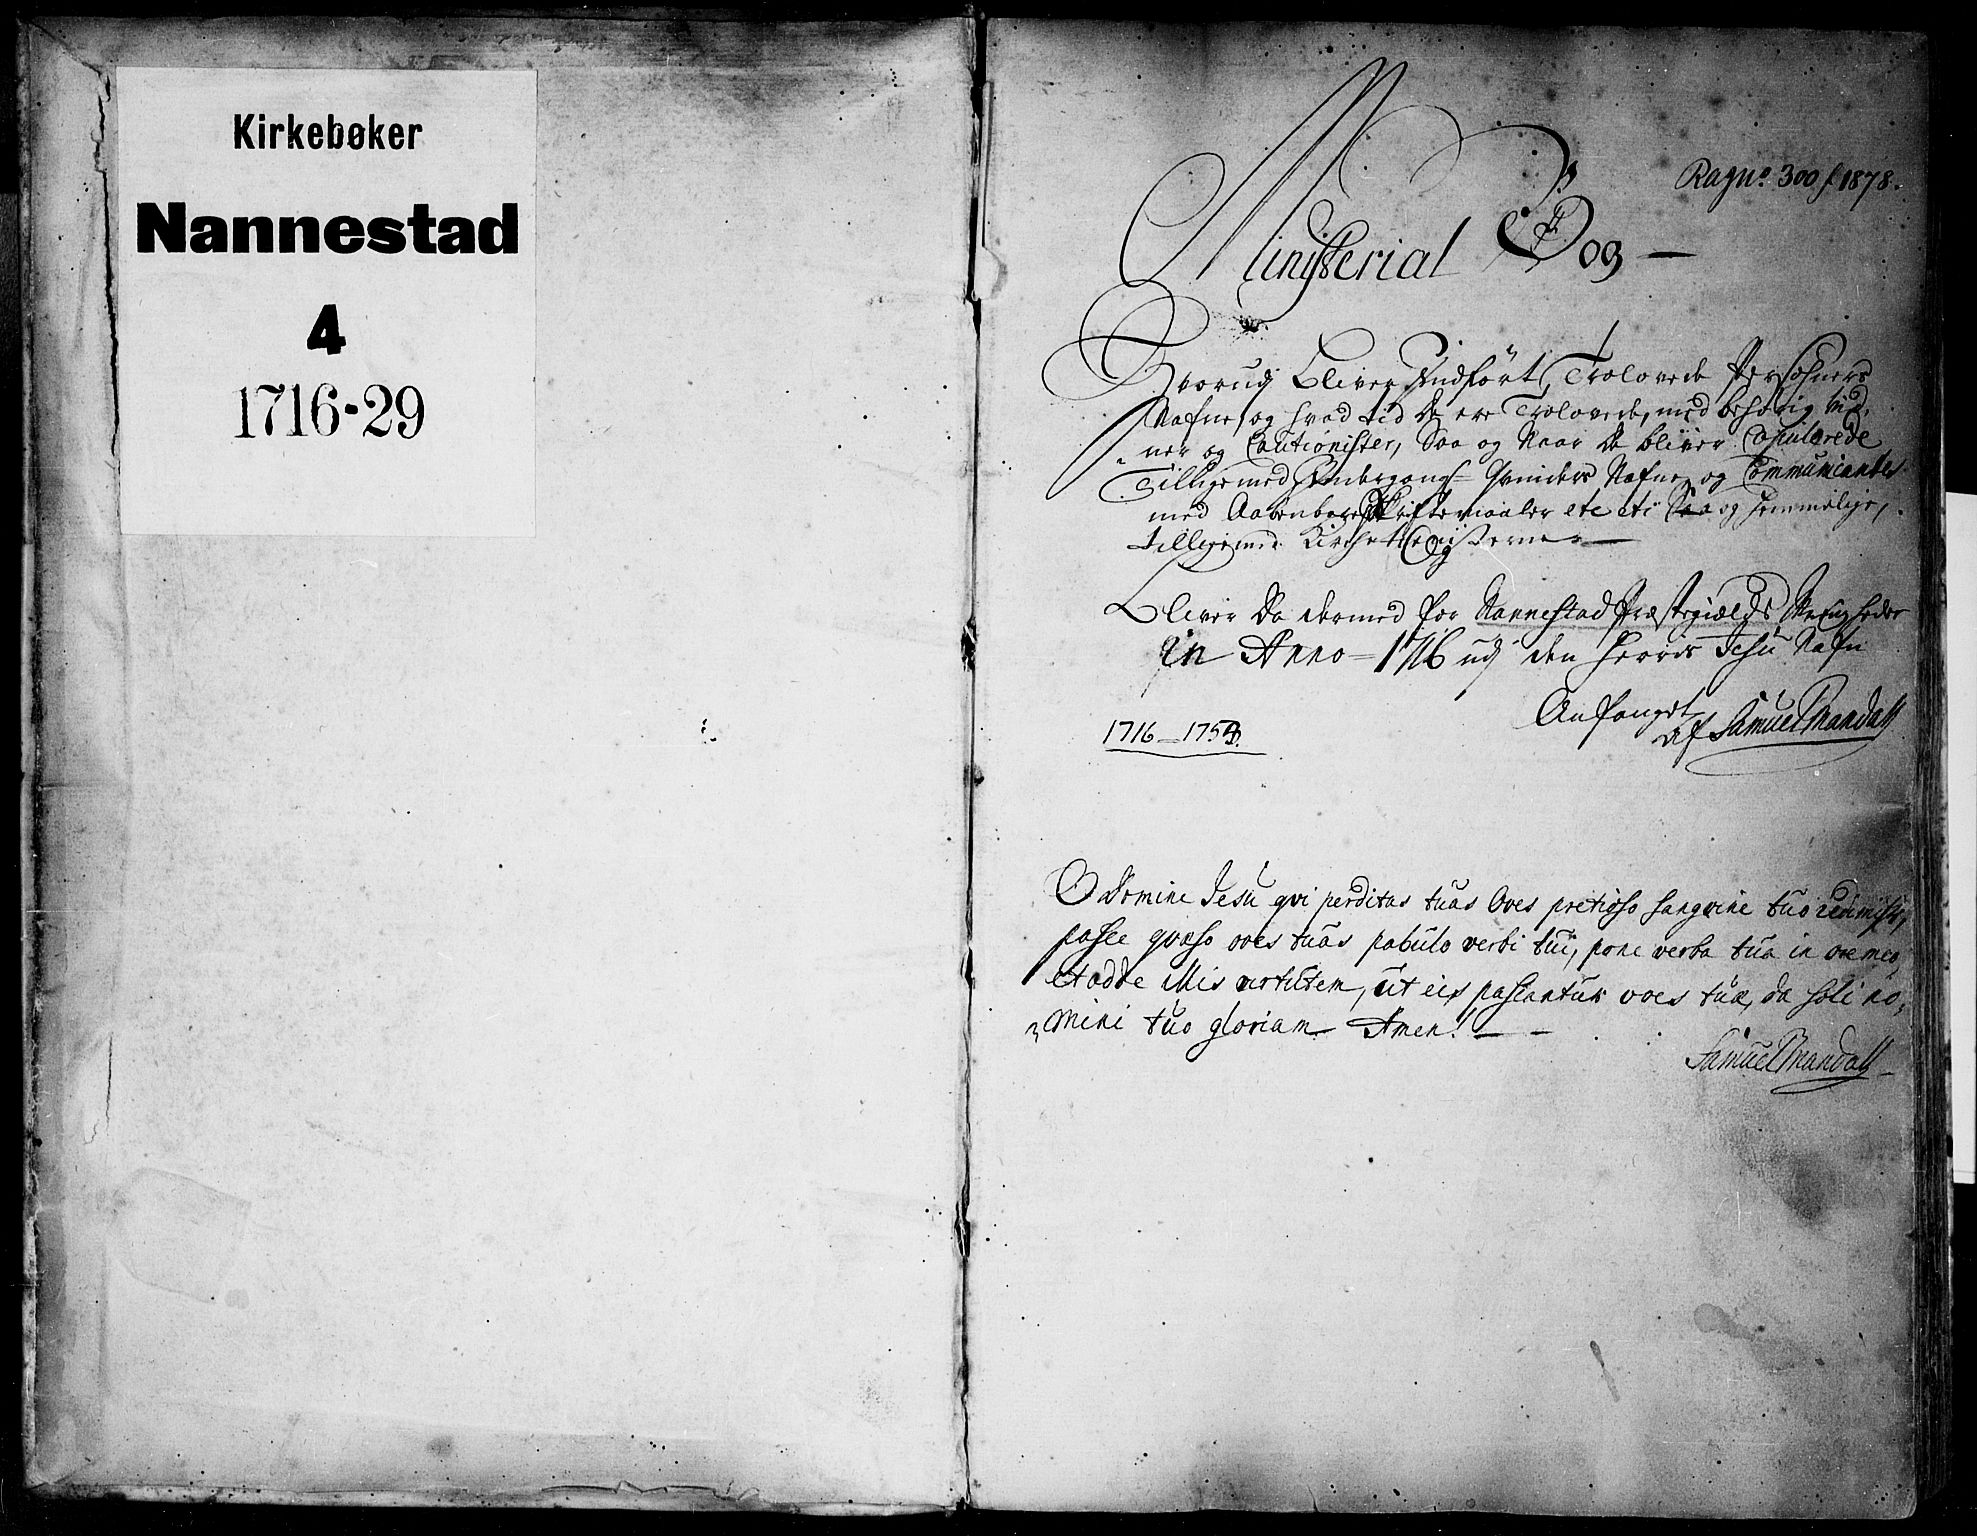 Kirkebøker
Nannestad
4
1716-29
Ragno. 300 f 1878.
Ministerial Bog
Hvorudj Bliver Indført, Trolovede Persohners
Nafne, og hvad tid de ere Trolovede, med behørig vid-
ner og Cautionister, Saa og Naar de bliver Copulerede
Tilligemed Qvinders Nafne, og Communicantes
med Aabenbare Skriftemaaler etc Saa og hemmelige,
tilligemed Kirche
Bliver da dermed for Nannestad Præstegiælds Menigheder
in Anno 1716 udj den Herris Jesu Nafn
Anfanget
af Samuel Mandall
1716-175
O Domine Jesu qvi perditas tuas Oves pretioso sangvine tuo redimisti,
pasce qvæso oves tuas pabulo verbi tui, pone verba tua in ore meo
et adde illis virtutem, ut eis pascantur oves tuæ, da soli no-
mini tuo gloriam Amen!
Samuel Mandall